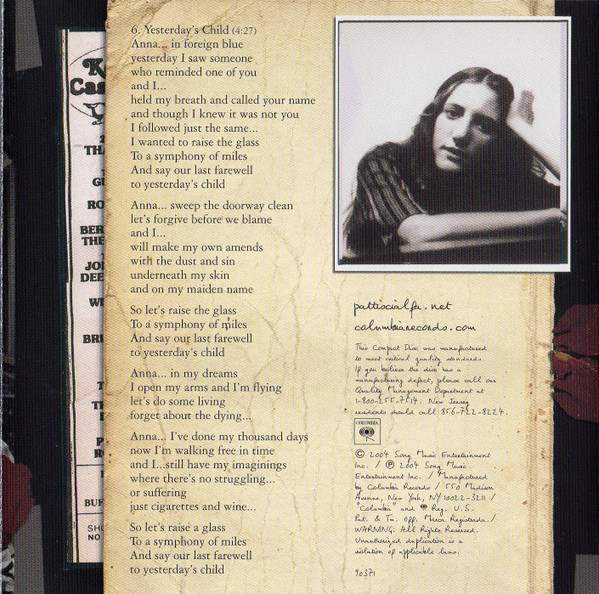 6. Yesterday's Child (4:27)
Anna... in foreign blue
yesterday I saw someone
who reminded one of you
and I...
held my breath and called your name
and though I knew it was not you
I followed just the same...
I wanted to raise the glass
To a symphony of miles
And say our last farewell
to yesterday's child
Anna... sweep the doorway clean
let's forgive before we blame
and I...
will make my own amends
with the dust and sin
underneath my skin
and on my maiden name
So let's raise the glass
To a symphony of miles
And say our last farewell
to yesterday's child
Anna... in my dreams
I open my arms and I'm flying
let's do some living
forget about the dying...
Anna... I've done my thousand days
now I'm walking free in time
and I...still have my imaginings
where there's no struggling...
or suffering
just cigarettes and wine...
So let's raise a glass
To a symphony of miles
And say our last farewell
to yesterday's child
pattiscialfa.net
columbiarecords.com
This Compact Disc was manufactured
to meet critical quality standards.
If you believe the disc has a
manufacturing defect, please call our
Quality Management Department at
1-800-255-7514. New Jersey
residents should call 856-722-8224.
COLUMBIA
© 2004 Sony Music Entertainment
Inc. / ℗ 2004 Sony Music
Entertainment Inc. / Manufactured
by Columbia Records / 550 Madison
Avenue, New York, NY 10022-3211 /
"Columbia" and Reg. U.S.
Pat. & Tm. Off. Marca Registrada. /
WARNING: All Rights Reserved.
Unauthorized duplication is a
violation of applicable laws.
90371